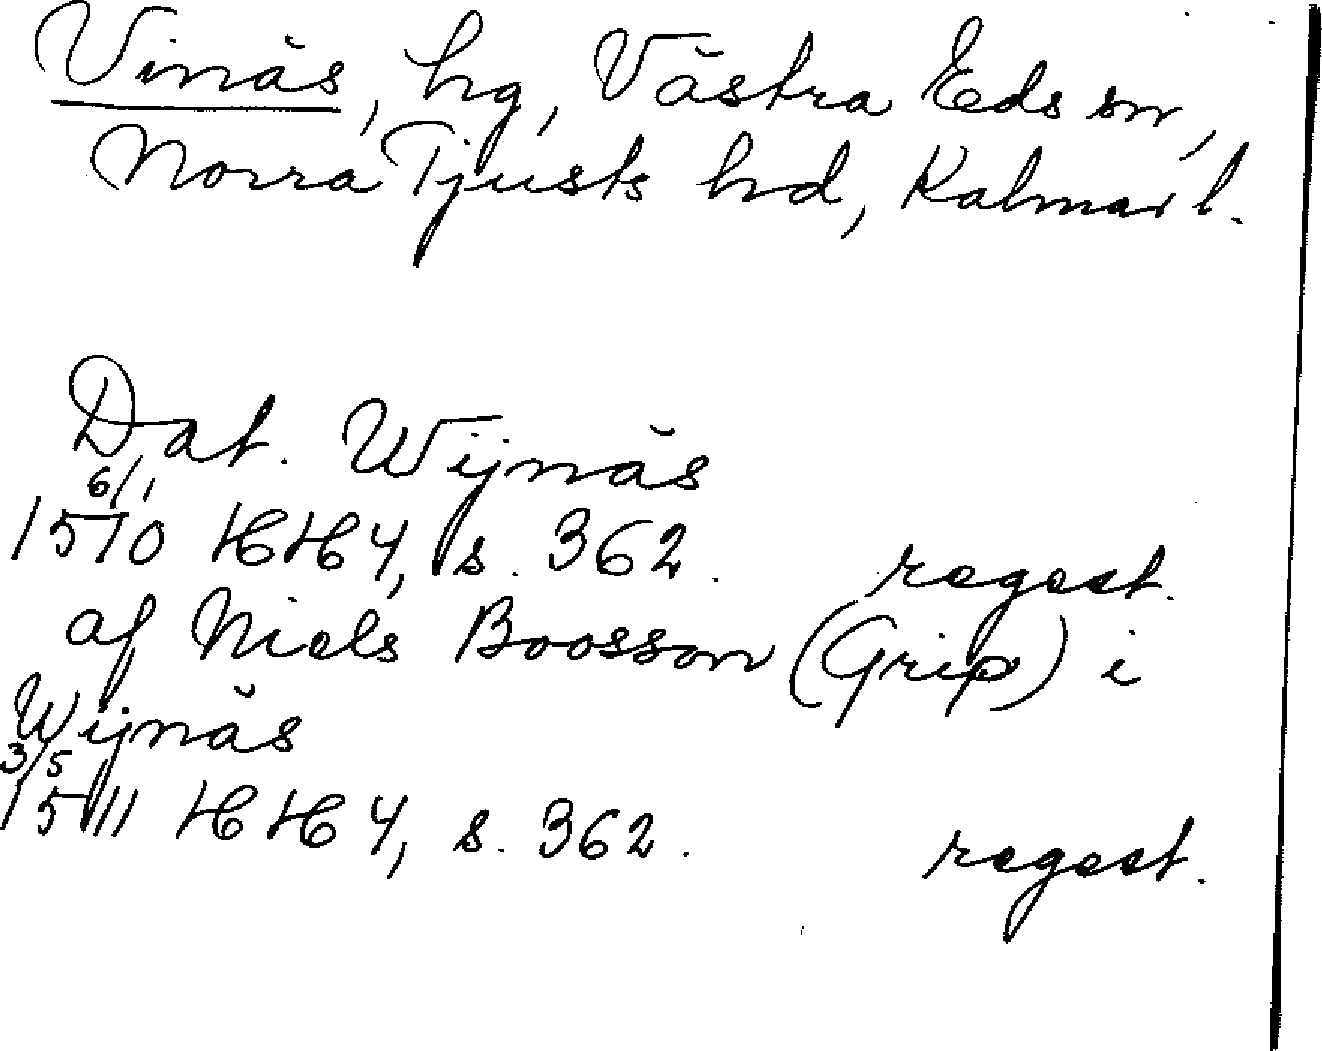 Vinäs, hg, Västra Eds sn,
Norra Tjusts hd, Kalmar l.
Dat. Wijnäs
6/1
1510 HH 4, s. 362. regest.
af Niels Boosson (Grip) i
Wijnäs
3/5
1511 HH 4, s. 362. regest.